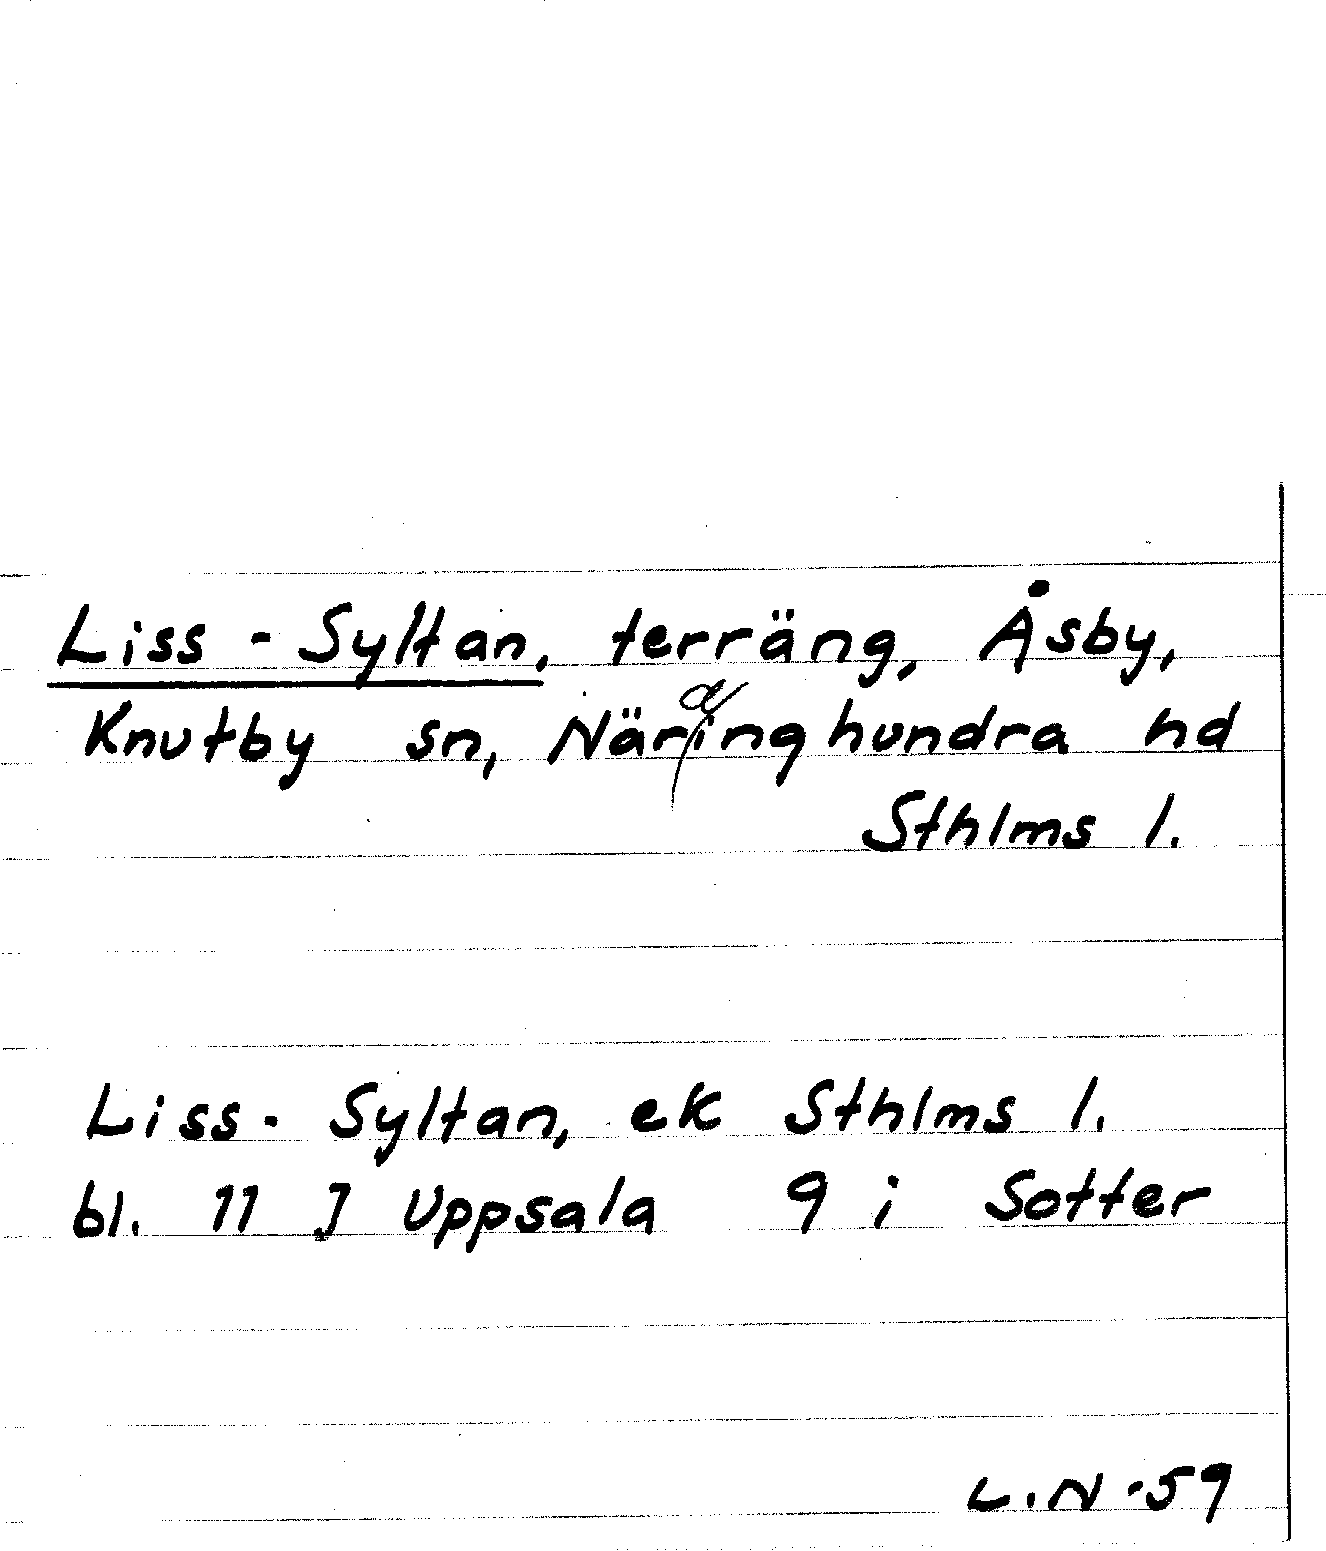 Liss-Syltan, terräng, Åsby,
Knutby sn, Näringhundra hd
Sthlms l.
Liss-Syltan, ek Sthlms l.
bl. 11 J Uppsala 9 i Sotter
L.N -59